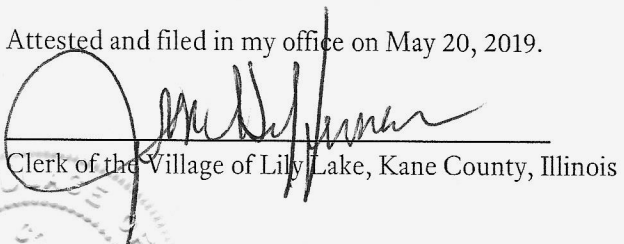 Attested and filed in my office on May 20, 2019.
Clerk of the Village of Lily Lake, Kane County, Illinois